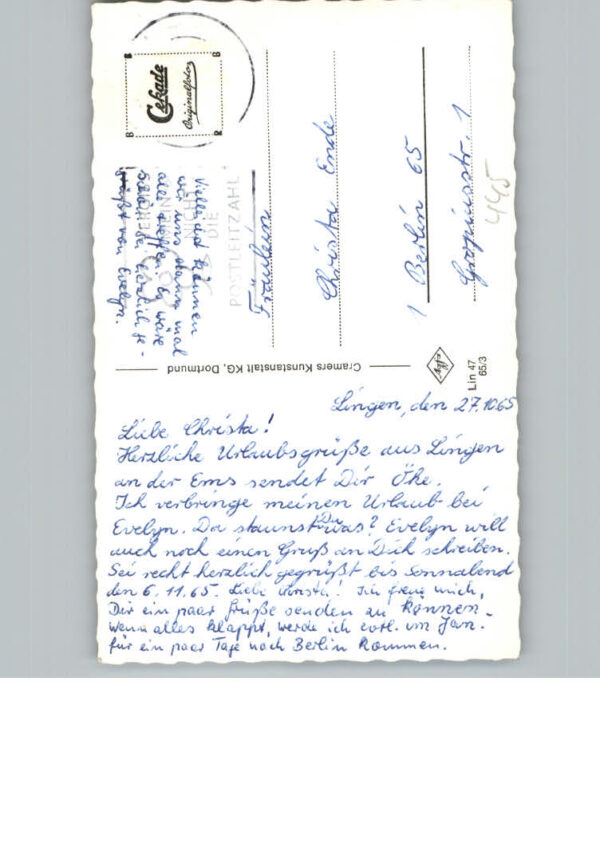 Lingen, den 27.10.65
Liebe Christa!
Herzliche Urlaubsgrüße aus Lingen
an der Ems sendet Dir Öhe.
Ich verbringe meinen Urlaub bei
Evelyn. Da staunst Du was? Evelyn will
auch noch einen Gruß an Dich schreiben.
Sei recht herzlich gegrüßt bis Sonnabend
den 6.11.65. Liebe Christa! Ich freue mich,
Dir ein paar Grüße senden zu können.
Wenn alles klappt, werde ich evtl. im Jan.
für ein paar Tage nach Berlin kommen.
Vielleicht können
wir uns dann mal
alle treffen. Es wäre
Sei herzlich ge-
grüßt von Evelyn.
Cekade
Originalfoto
VERGISS
MEIN
NICHT
DIE
POSTLEITZAHL
Fräulein
Christa Ende
1 Berlin 65
Gropiusstr. 1
445
Cramers Kunstanstalt KG, Dortmund
Lin 47
65/3